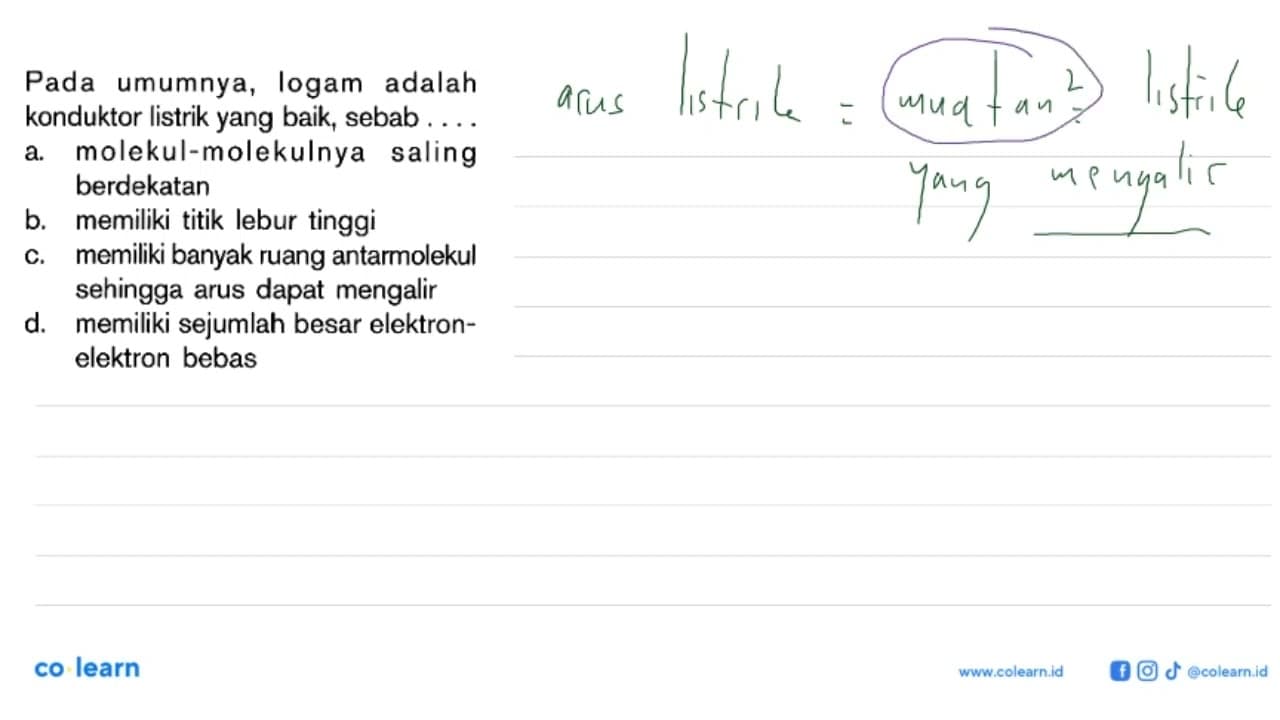 Pada umumnya, logam adalah
konduktor listrik yang baik, sebab . . . .
a. molekul-molekulnya saling
berdekatan
b. memiliki titik lebur tinggi
c. memiliki banyak ruang antarmolekul
sehingga arus dapat mengalir
d. memiliki sejumlah besar elektron-
elektron bebas
arus listrik = muatan² listrik
yang mengalir
co learn
www.colearn.id
@colearn.id